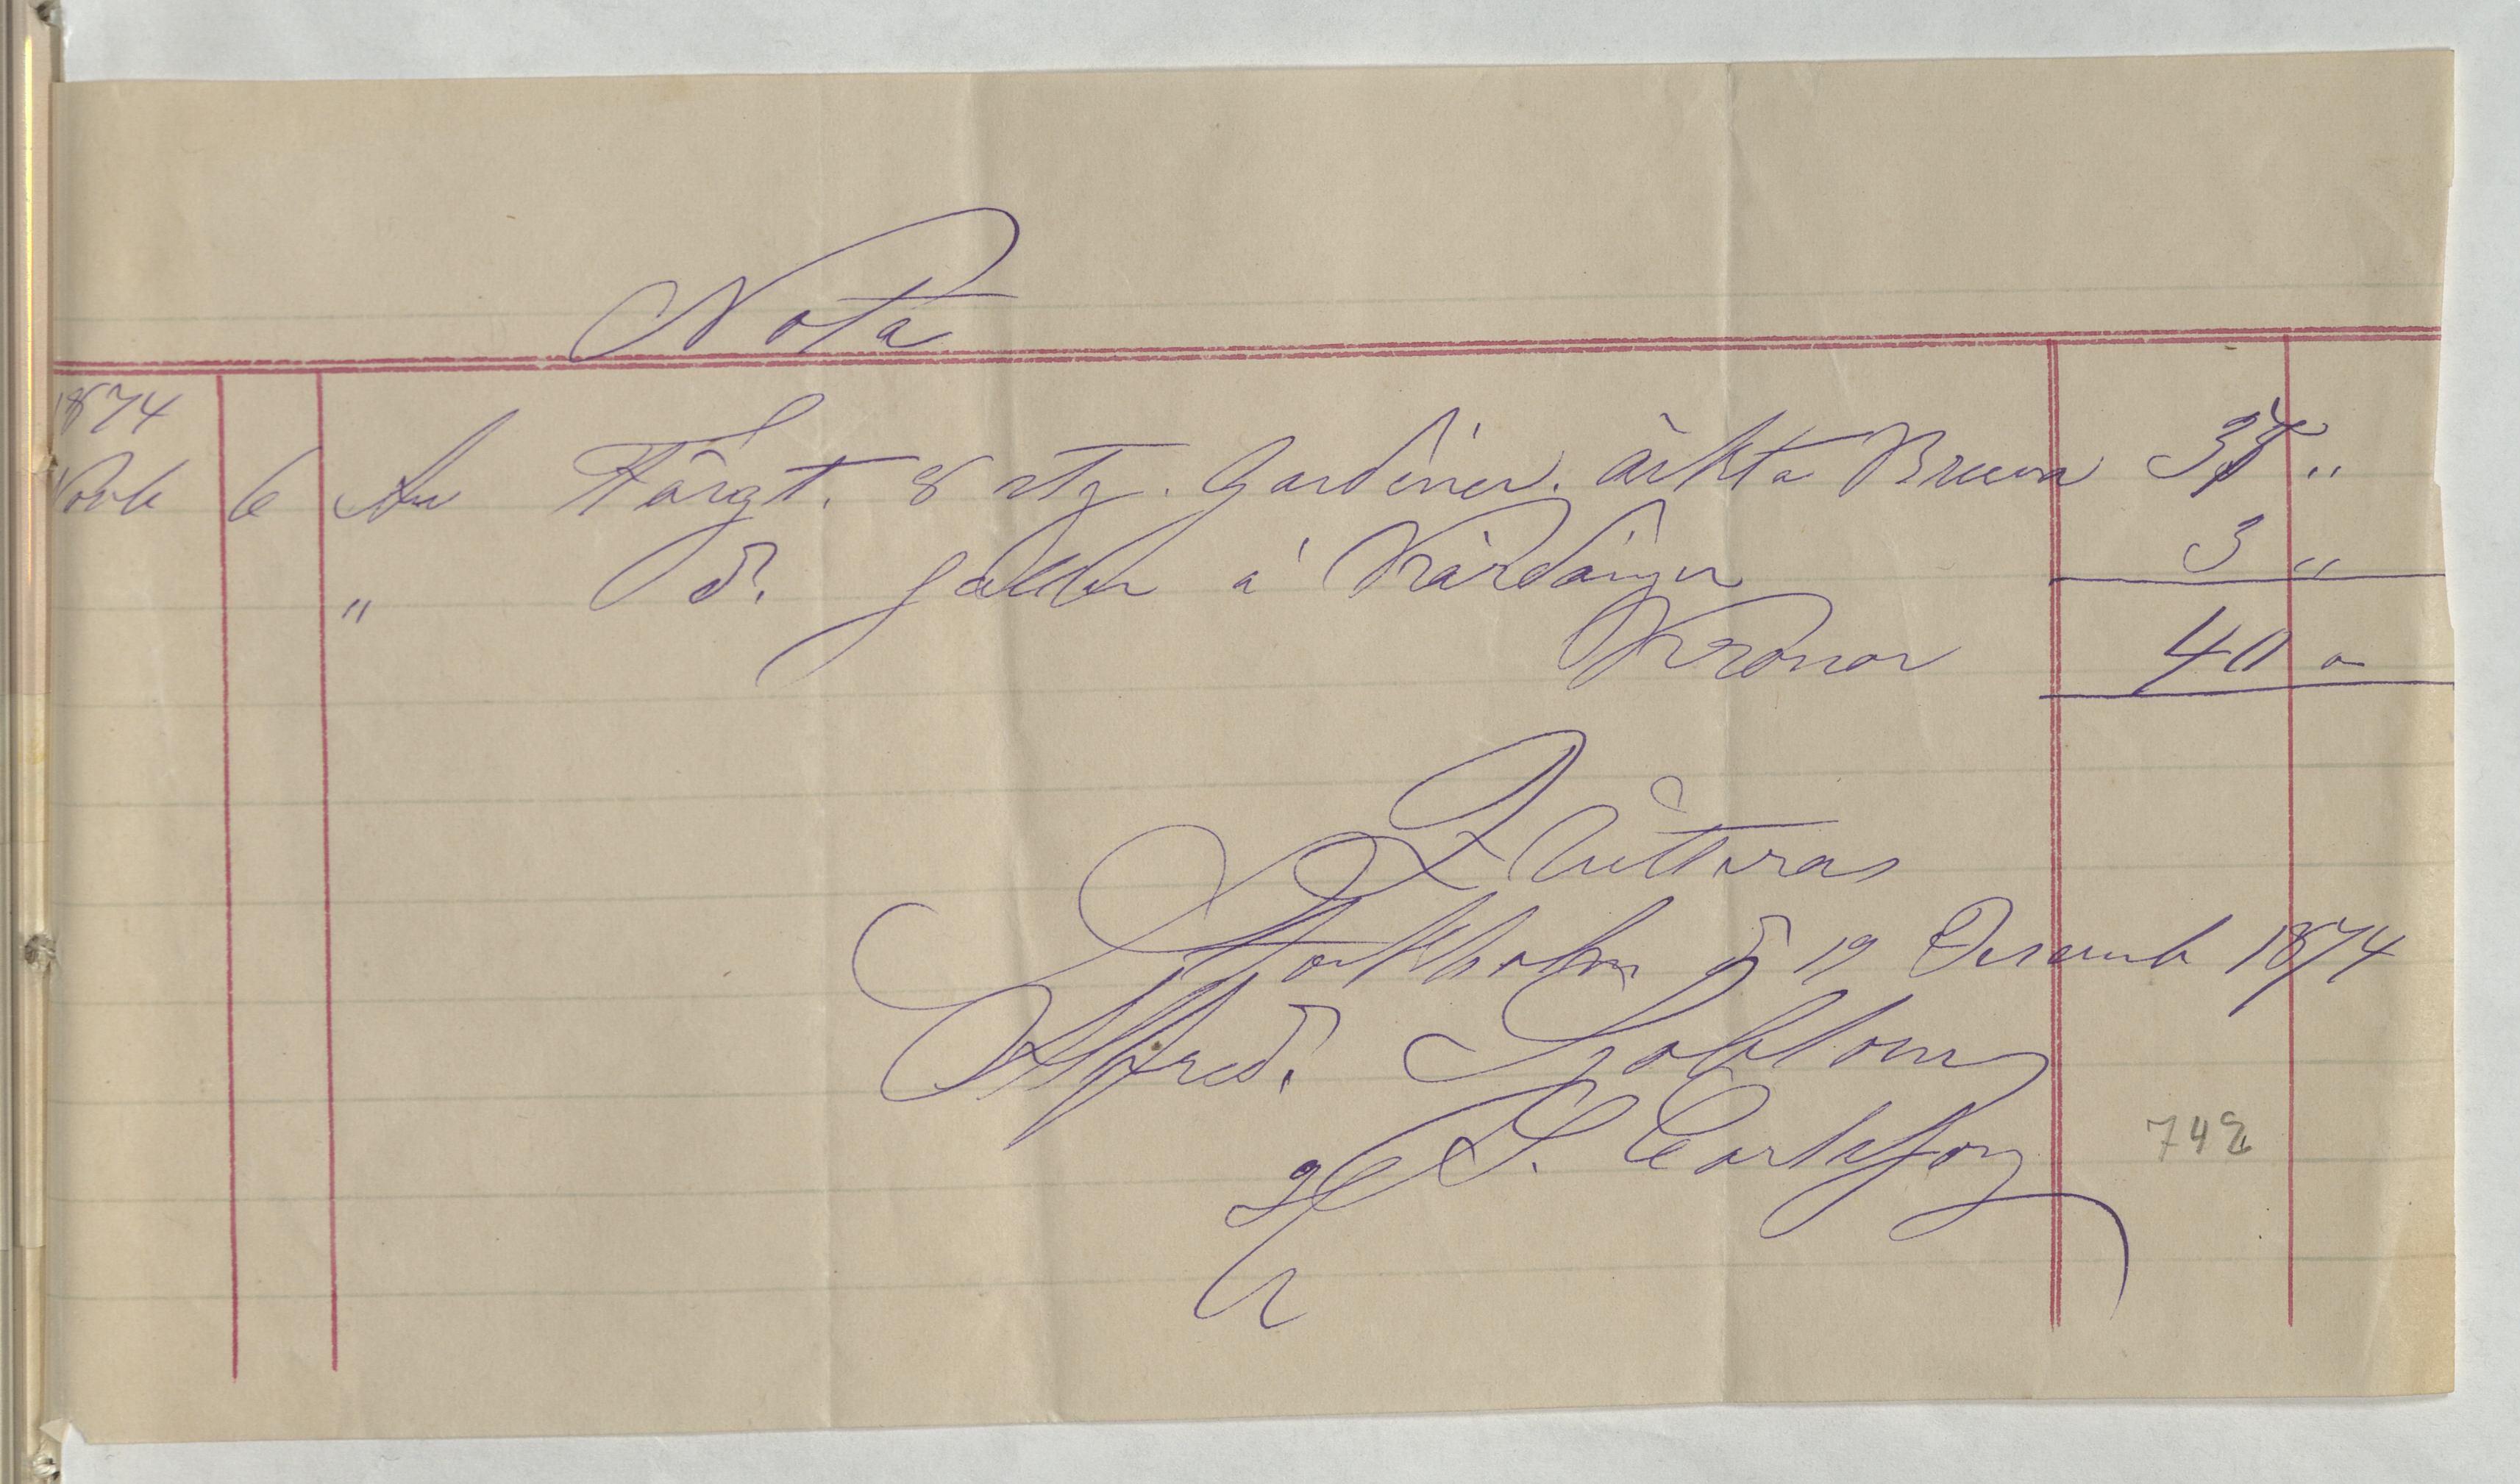 Nota
1874
Novb 6 An Färgt. 8 sty. Gardiner. äckta Bruna 37 "
" d:o galler a' 3 "
Kronor 40 "
Qvitteras
Stockholm d 19 Decemb 1874
Alfred. Sjöblom
S. Carlsson
742